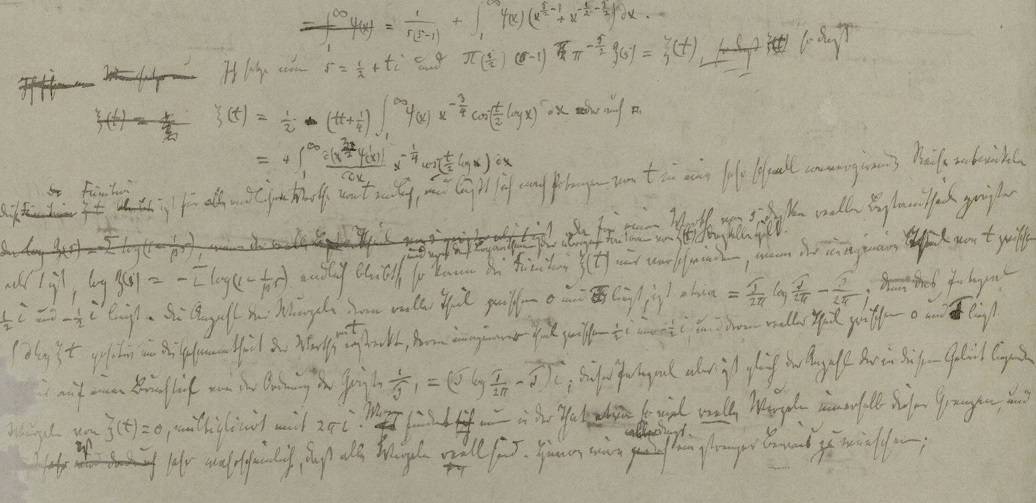 = ∫₁^∞ ψ(x) = 1/(s(s-1)) + ∫₁^∞ ψ(x) (x^(s/2 - 1) + x^(-1/2 - s/2)) dx.
Ich setze nun s = 1/2 + ti und Π(s/2) (s-1) π^(-s/2) ζ(s) = ξ(t), so daß
ξ(t) = ξ(t) = 1/2 - (tt + 1/4) ∫₁^∞ ψ(x) x^(-3/4) cos(t/2 log x) dx oder auch
= 4 ∫₁^∞ d(x^(3/2) ψ'(x))/dx x^(-1/4) cos(t/2 log x) dx
die Function
diese Function ξt ist für alle endlichen Werthe von t endlich, und läßt sich nach Potenzen von tt in eine sehr schnell convergirende Reihe entwickeln
log ζ(s) = Σ log(1 - p^-s), da für einen Werth von s, dessen reeller Bestandtheil größer
und von den Logarithmen der übrigen Factoren von ξ(t) dasselbe gilt,
als 1 ist, log ζ(s) = - Σ log(1 - p^-s) endlich bleibt, so kann die Function ξ(t) nur verschwinden, wenn der imaginäre Theil von t zwischen
1/2 i und -1/2 i liegt. Die Anzahl der Wurzeln deren reeller Theil zwischen 0 und T liegt, ist etwa = T/2π log T/2π - T/2π; denn das Integral
∫ d log ξt positiv um die Gesammtheit der Werthe von t erstreckt, deren imaginärer Theil zwischen 1/2 i und -1/2 i, und deren reeller Theil zwischen 0 und T liegt
bis auf einen Bruchtheil von der Ordnung der Größe 1/T, = (T log T/2π - T) i; dieses Integral aber ist gleich der Anzahl der in diesem Gebiet liegenden
Wurzeln von ξ(t) = 0, multiplicirt mit 2πi. Man findet nun in der That etwa so viel reelle Wurzeln innerhalb dieser Grenzen und
ist sehr wahrscheinlich, daß alle Wurzeln reell sind. Hiervon wäre allerdings ein strenger Beweis zu wünschen;